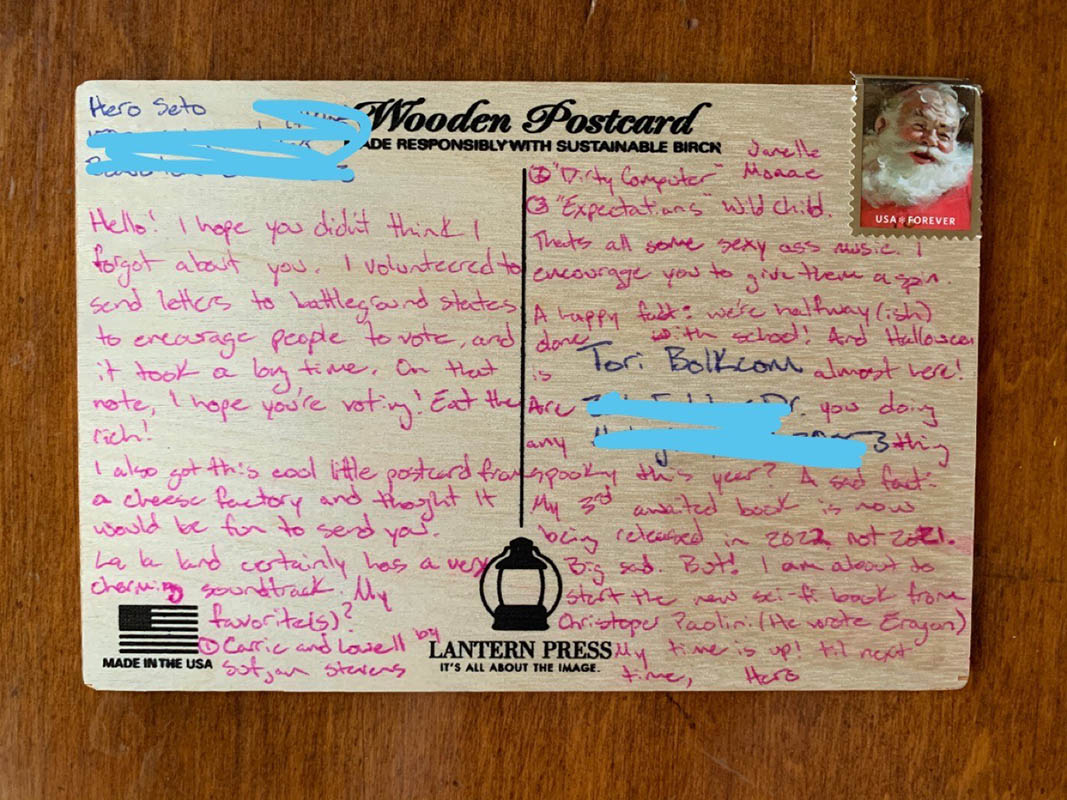 Hero Seto
Wooden Postcard
MADE RESPONSIBLY WITH SUSTAINABLE BIRCH
USA FOREVER
Hello! I hope you didn't think I
forgot about you. I volunteered to
send letters to battleground states
to encourage people to vote, and
it took a long time. On that
note, I hope you're voting! Eat the
rich!
I also got this cool little postcard from
a cheese factory and thought it
would be fun to send you.
La la land certainly has a very
charming soundtrack. My
favorite(s)?
① Carrie and Lowell by
Sufjan Stevens
MADE IN THE USA
LANTERN PRESS
IT'S ALL ABOUT THE IMAGE.
② "Dirty Computer" Janelle
Monae
③ "Expectations" Wild Child.
Thats all some sexy ass music. I
encourage you to give them a spin.
A happy fact: we're halfway(ish)
done with school! And Halloween
is almost here!
Tori Bolkcom
Are you doing
any thing
Dr.
spooky this year? A sad fact:
My 3rd awaited book is now
being released in 2022 not 2021.
Big sad. But! I am about to
start the new sci-fi book from
Christoper Paolini. (He wrote Eragon)
My time is up! til next
time, Hero